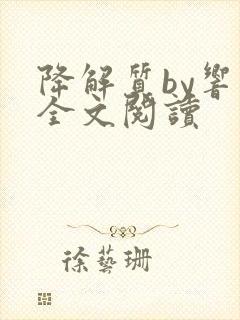 降解質by響
全文閱讀
徐藝珊